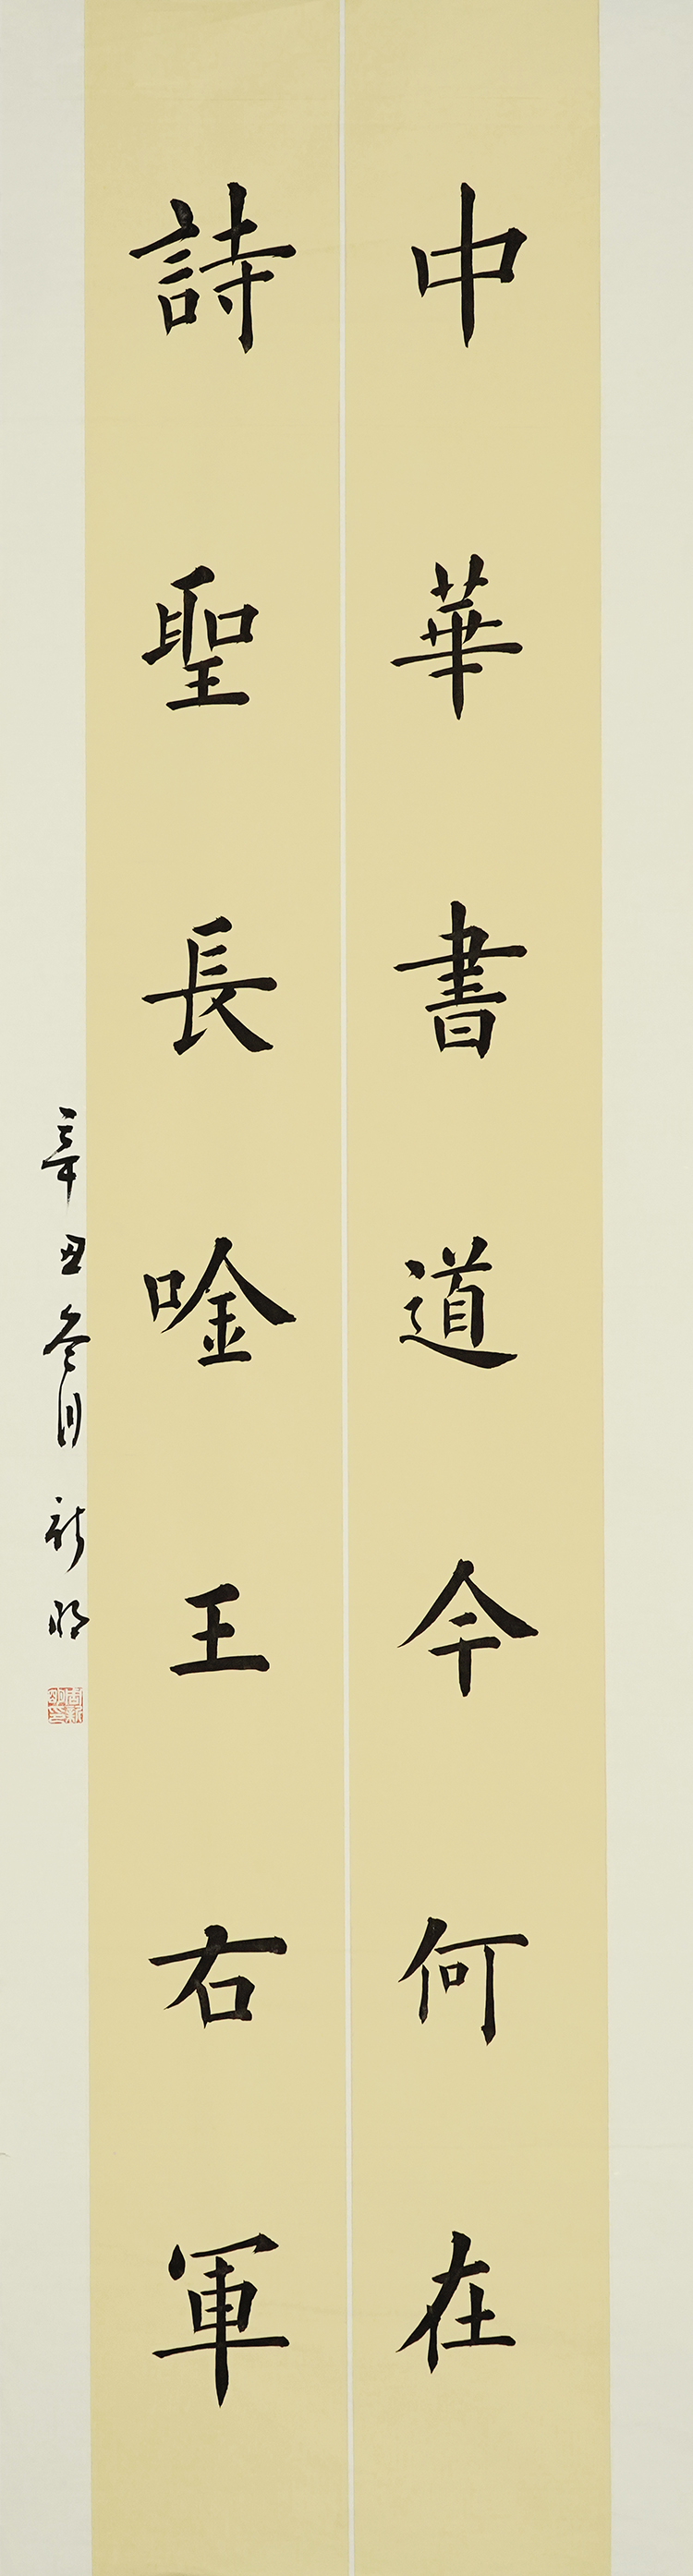 中華書道今何在
詩聖長唫王右軍
辛丑冬月 新明
周新明印